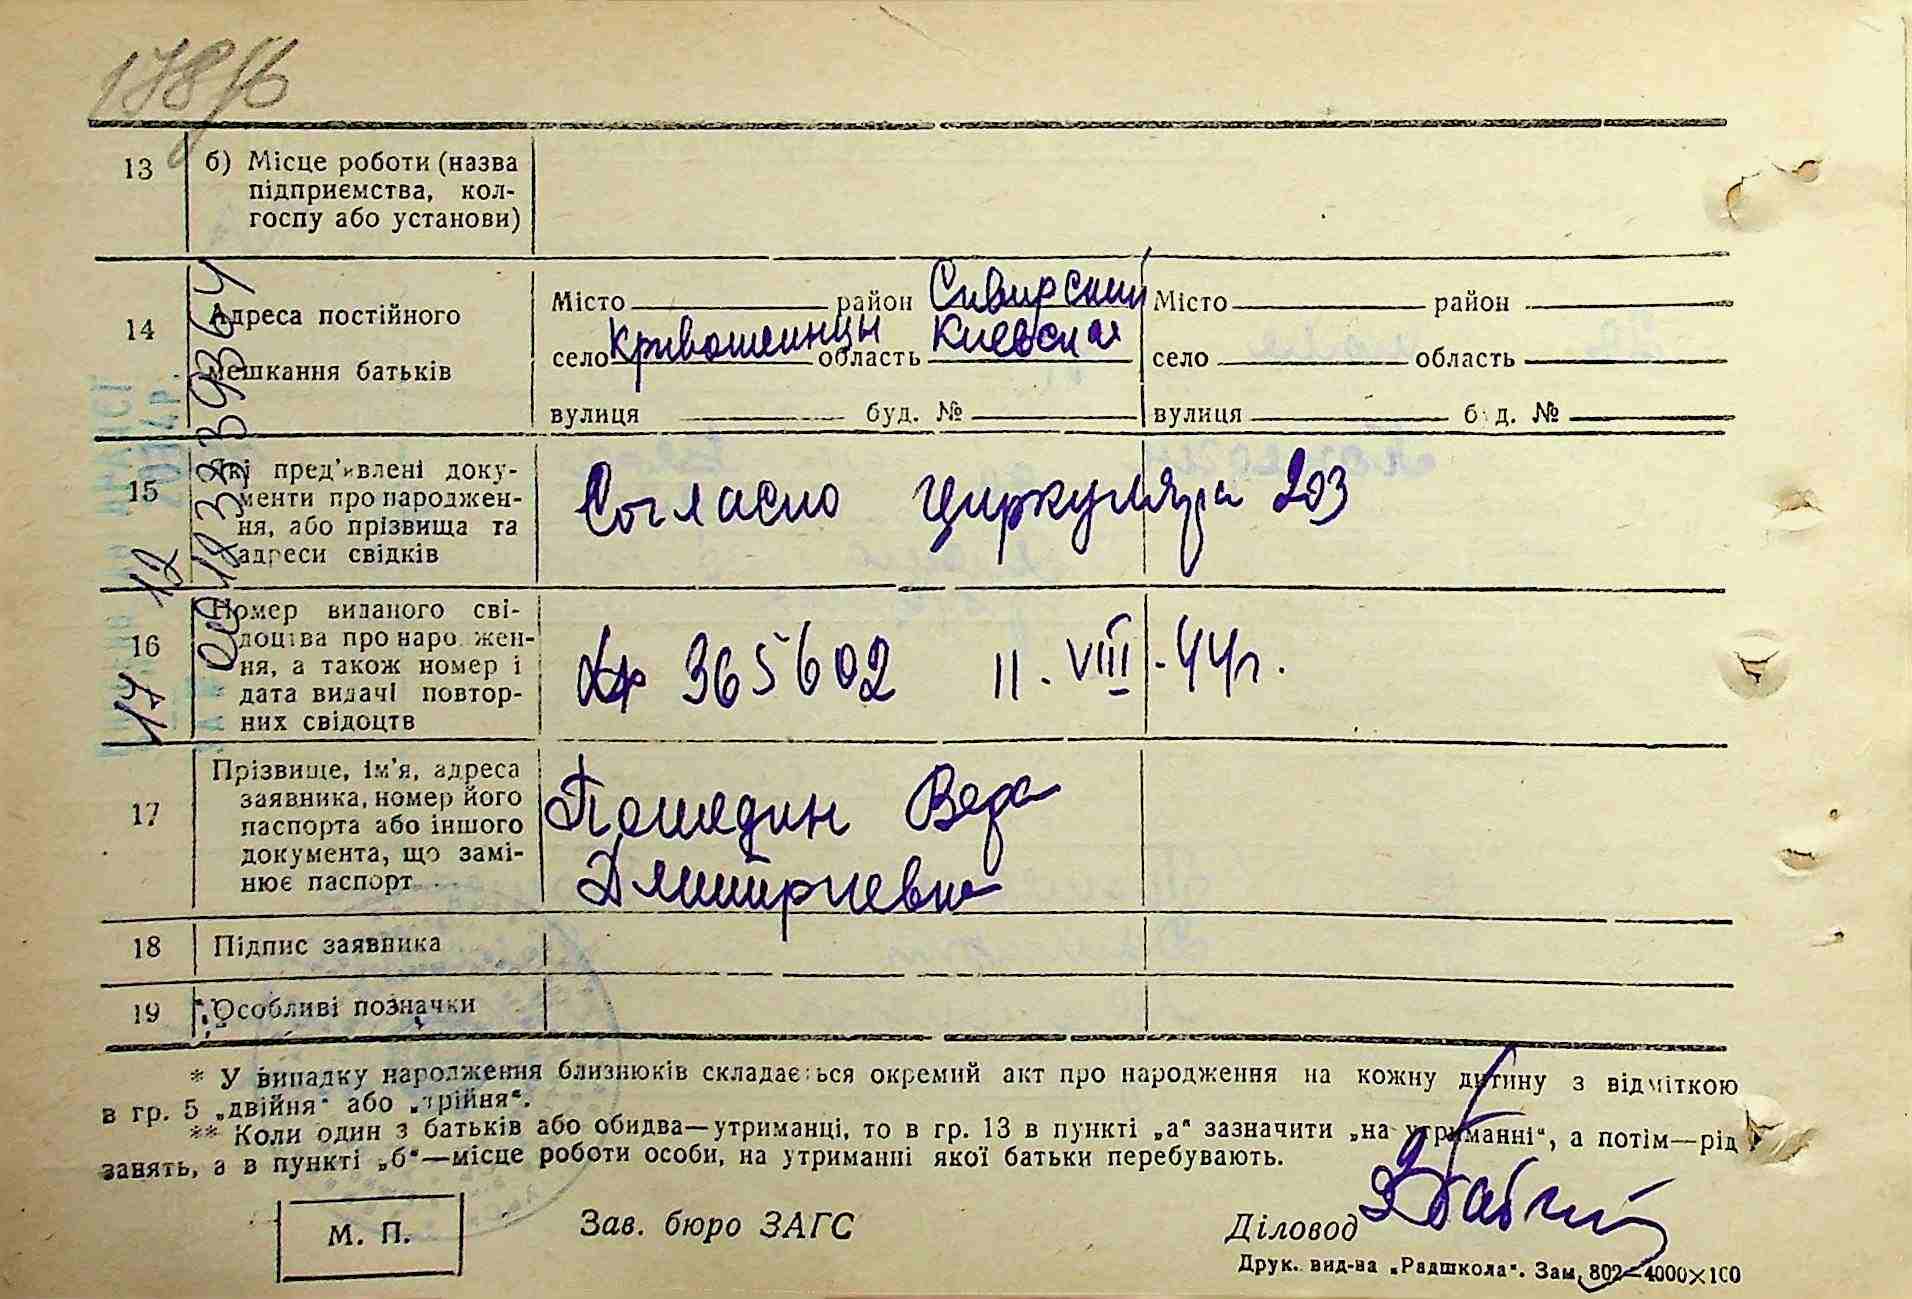 178
13 б) Місце роботи (назва
підприємства, кол-
госпу або установи)
14 Адреса постійного
мешкання батьків
Місто район Сквирский
село Кривошеинцы область Киевская
вулиця буд. №
Місто район
село область
вулиця б д. №
15 Які пред'явлені доку-
менти про народжен-
ня, або прізвища та
адреси свідків
Согласно циркуляра 203
16 Номер виданого сві-
доцтва про народжен-
ня, а також номер і
дата видачі повтор-
них свідоцтв
365602 11. VIII - 44г.
17 Прізвище, ім'я, адреса
заявника, номер його
паспорта або іншого
документа, що замі-
нює паспорт
Пошедин Вера
Дмитриевна
18 Підпис заявника
19 Особливі позначки
17 12
00183339364
* У випадку народження близнюків складається окремий акт про народження на кожну дитину з відміткою
в гр. 5 „двійня“ або „трійня“.
** Коли один з батьків або обидва—утриманці, то в гр. 13 в пункті „а“ зазначити „на утриманні“, а потім—рід
занять, а в пункті „б“—місце роботи особи, на утриманні якої батьки перебувають.
М. П.
Зав. бюро ЗАГС
Діловод
Друк. вид-ва „Радшкола“. Зам. 802—4000×100